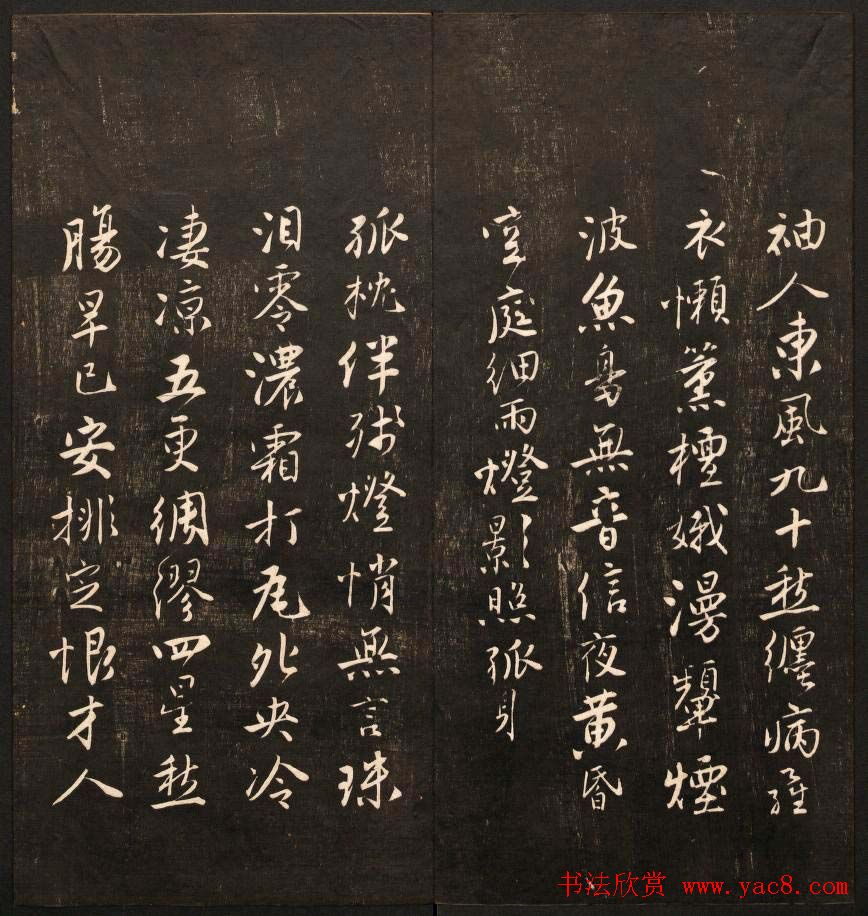 袖人東風九十愁纏病羅
衣懶薰檀娥漫顰煙
波魚鳥無音信夜黃昏
空庭細雨燈影照孤引
孤枕伴殘燈悄無言珠
泪零濃霜打瓦鴛央冷
凄涼五更綢繆四星愁
腸早已安排定恨才人
书法欣赏 www.yac8.com